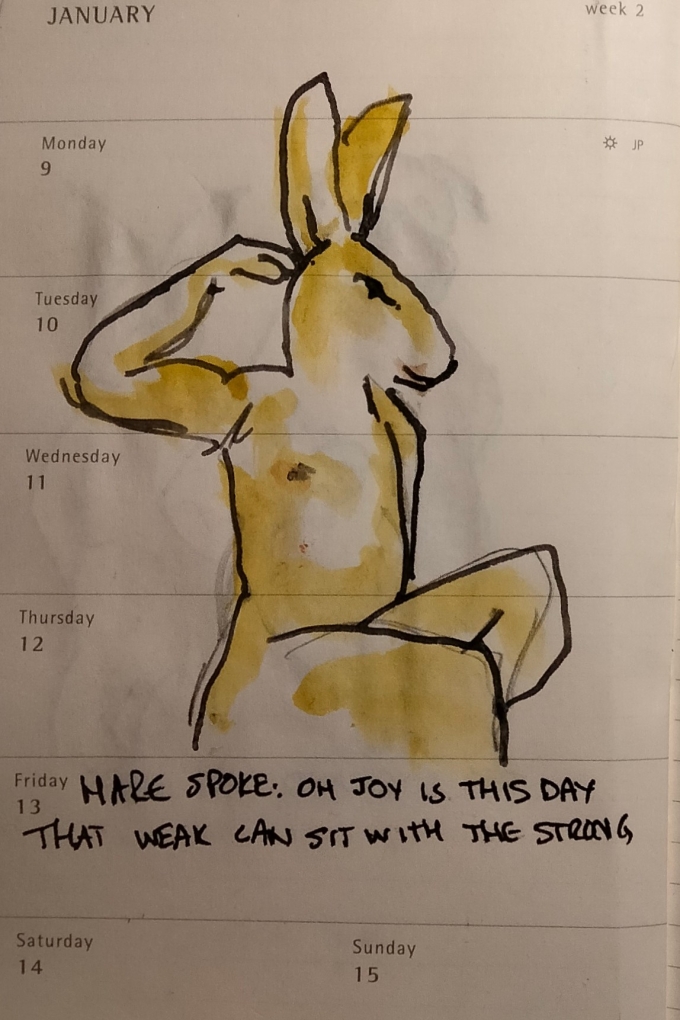 JANUARY
week 2
Monday
9
JP
Tuesday
10
Wednesday
11
Thursday
12
Friday
13
HARE SPOKE: OH JOY IS THIS DAY
THAT WEAK CAN SIT WITH THE STRONG
Saturday
14
Sunday
15